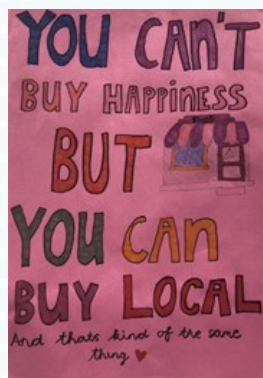 YOU CAN'T
BUY HAPPINESS
BUT
YOU CAN
BUY LOCAL
And thats kind of the same
thing ♥